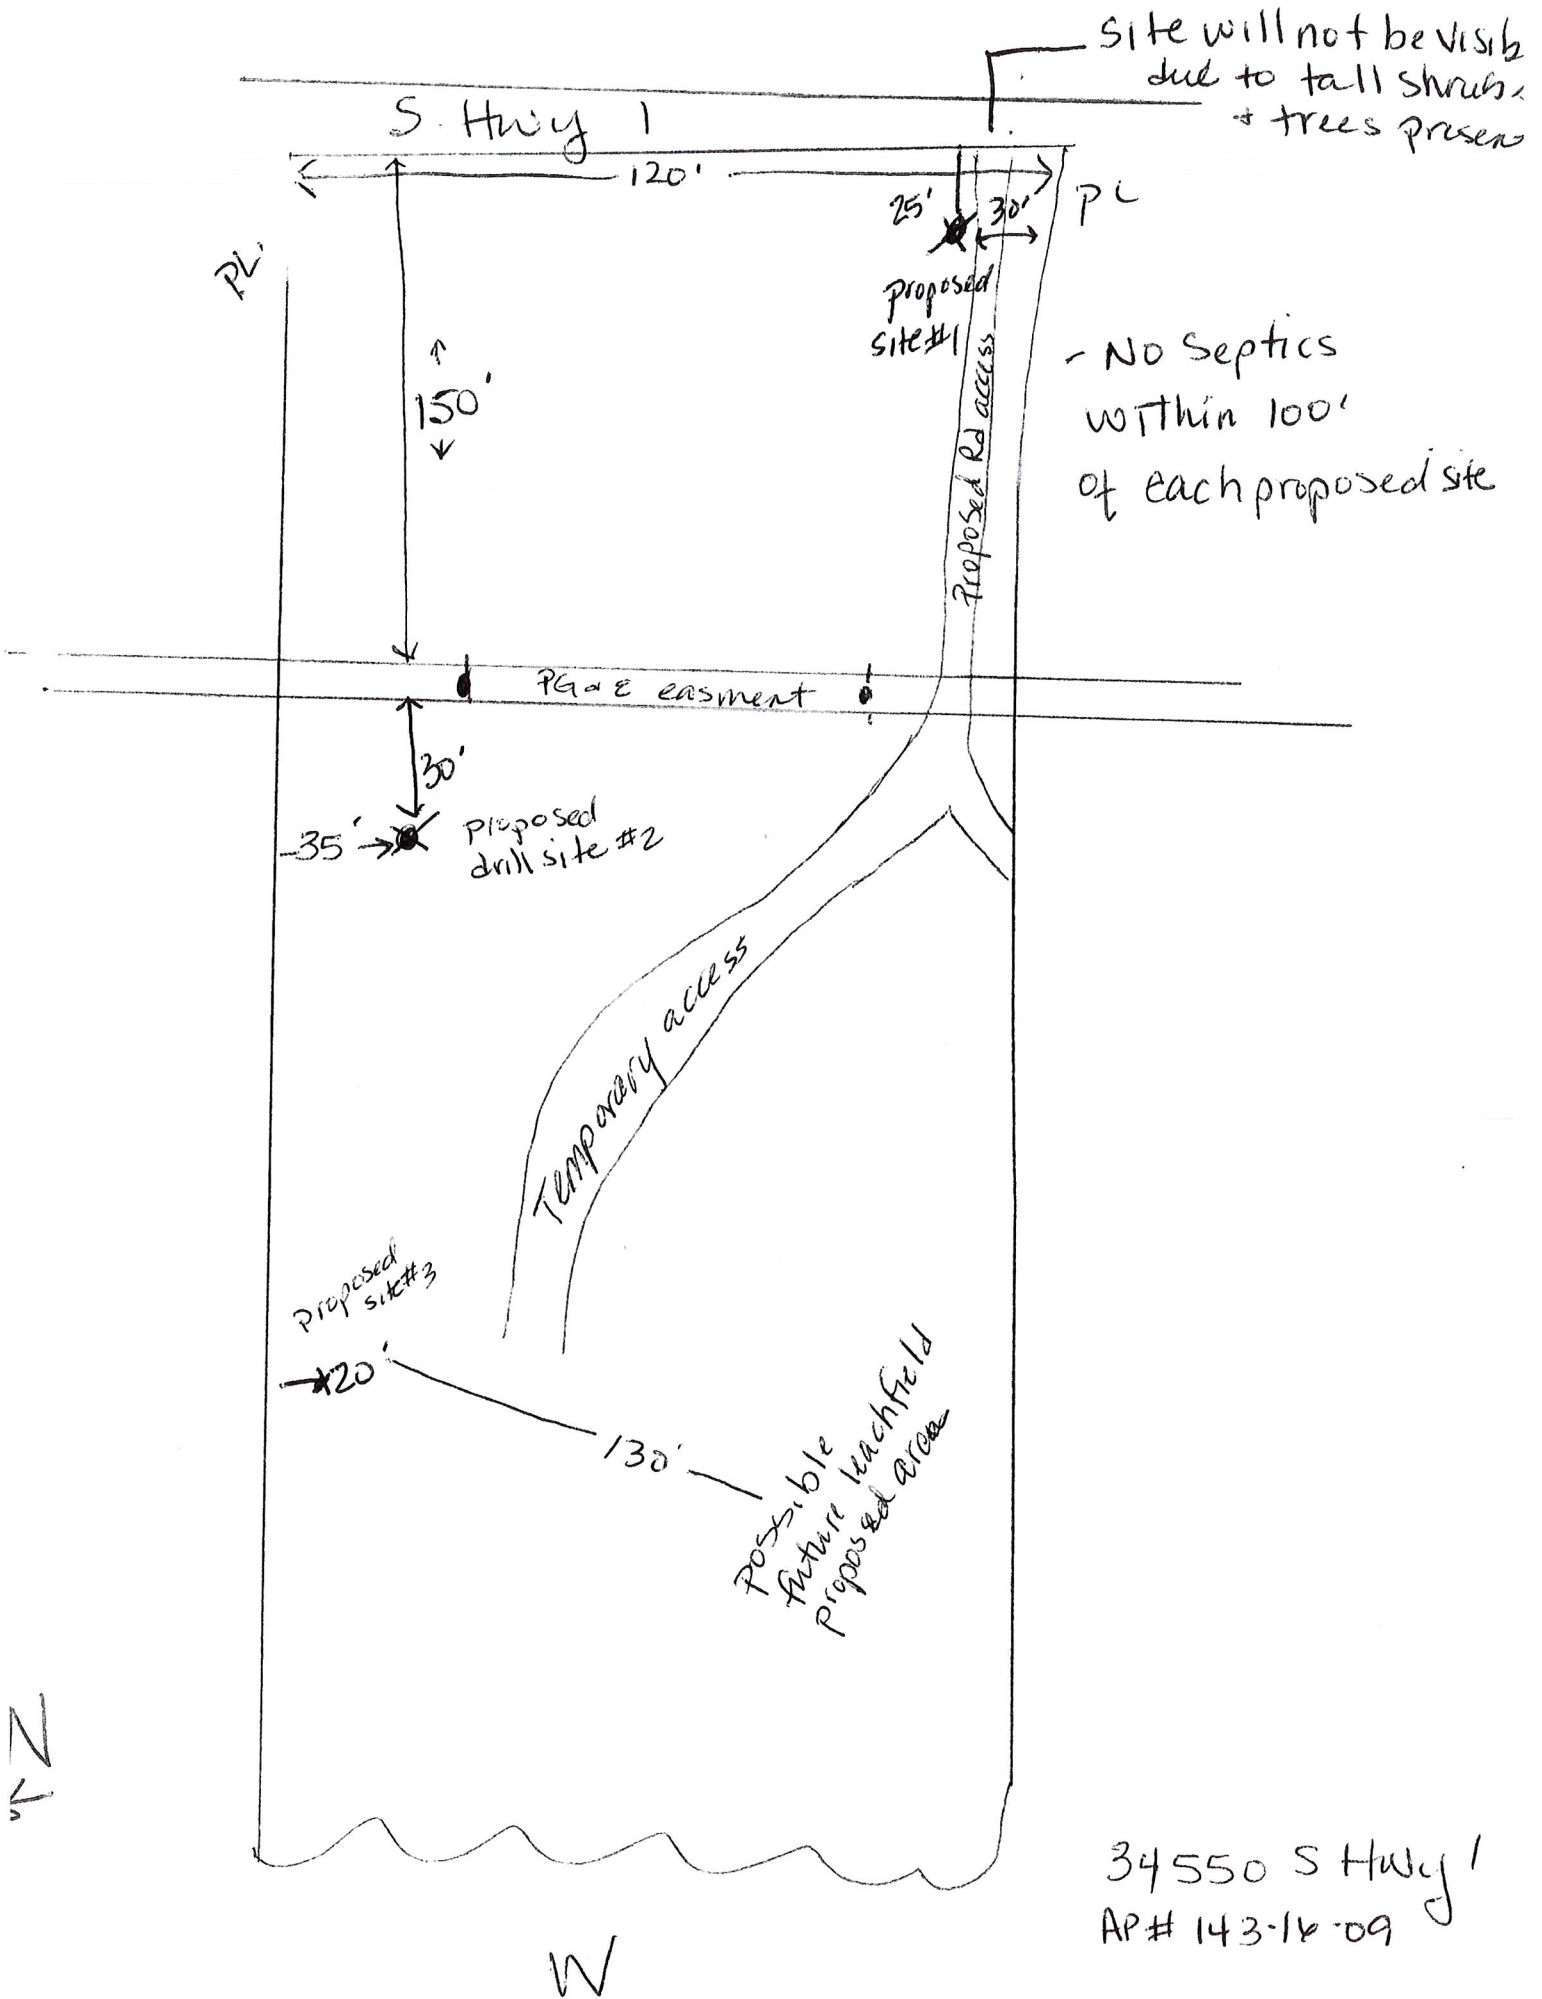 Site will not be visib
due to tall shrubs
+ trees presen
S. Hwy 1
120'
PL
PL.
25'
30'
proposed
site #1
Proposed Rd access
150'
- No Septics
within 100'
of each proposed site
PG & E easment
30'
35'
proposed
drill site #2
Temporary access
proposed
site #3
20'
130'
Possible
future leachfield
proposed area
N
W
34550 S Hwy 1
AP# 143-16-09